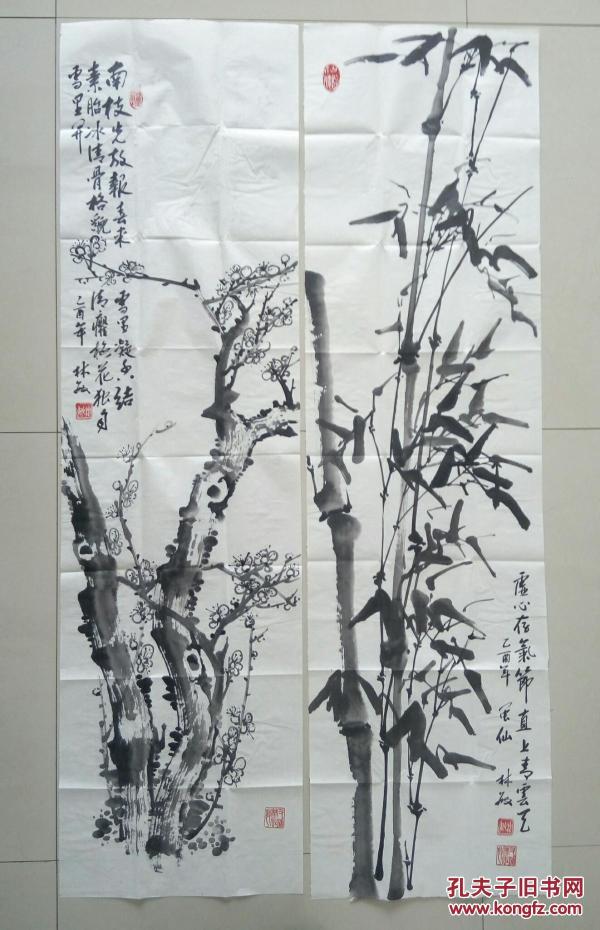 南枝先放報春来 雪里凝香結
素胎冰清骨格貌 清癯梅花猶自
雪里開
乙酉年 林敏
虛心存氣節直上青雲天
乙酉年 墨仙 林敏
孔夫子旧书网
www.kongfz.com